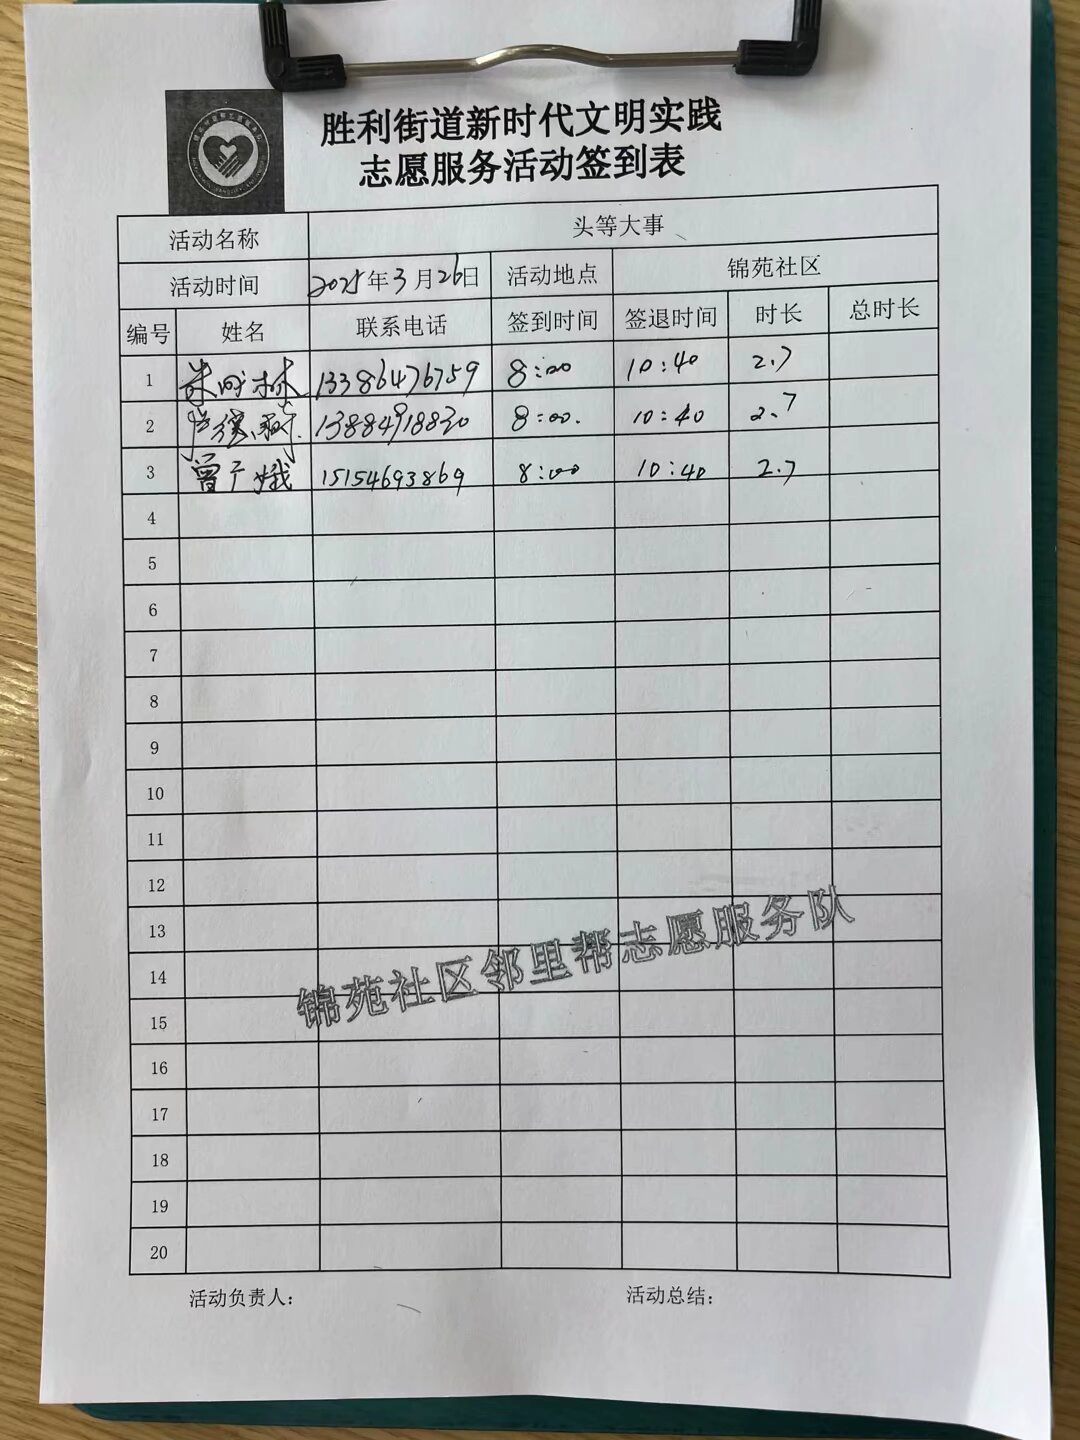 胜利街道新时代文明实践
志愿服务活动签到表
活动名称 头等大事
活动时间 2025年3月26日 活动地点 锦苑社区
编号 姓名 联系电话 签到时间 签退时间 时长 总时长
1 13386476759 8:00 10:40 2.7
2 13884918830 8:00. 10:40 2.7
3 曾广娥 15154693869 8:00 10:40 2.7
4
5
6
7
8
9
10
11
12
13
14
15
16
17
18
19
20
锦苑社区邻里帮志愿服务队
活动负责人: 活动总结: